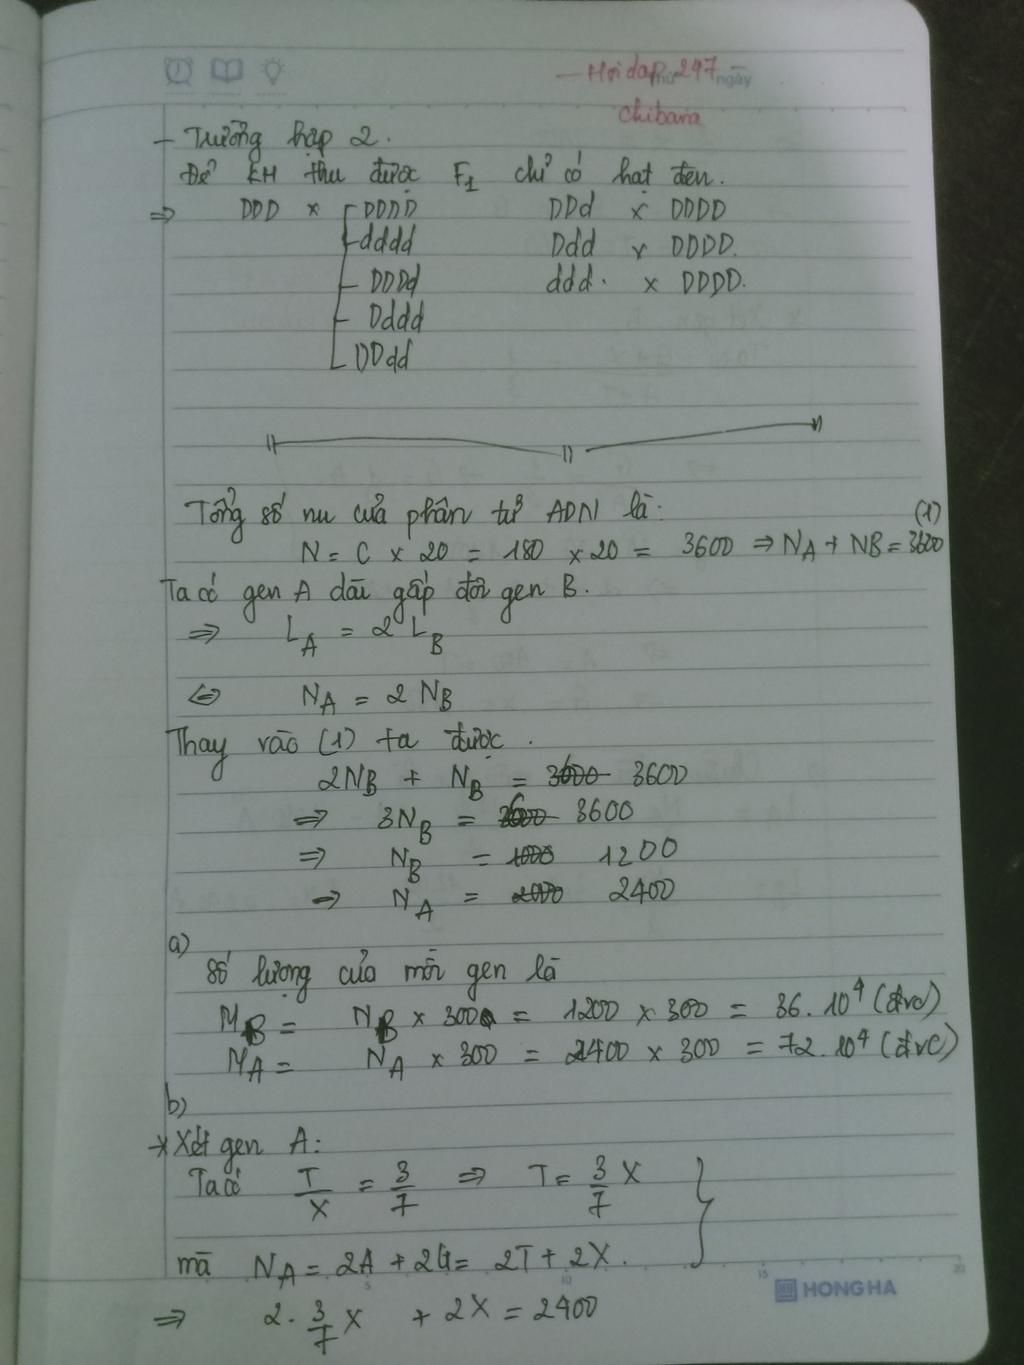 - Hỏi đáp 247
ngày
chibana
- Trường hợp 2.
Để KH thu được F1 chỉ có hạt đen.
⇒ DDD x DDDD DDd x DDDD
dddd Ddd x DDDD.
DDDd ddd. x DDDD.
Dddd
DDdd
Tổng số nu của phân tử ADN là:
(1)
N = C x 20 = 180 x 20 = 3600 ⇒ NA + NB = 3600
Ta có gen A dài gấp đôi gen B.
⇒ LA = 2 LB
⇔ NA = 2 NB
Thay vào (1) ta được.
2NB + NB = 3600 3600
⇒ 3NB = 3600
⇒ NB = 1000 1200
⇒ NA = 2000 2400
a)
số lượng của mỗi gen là
MB = NB x 300 = 1200 x 300 = 36.10^4 (đvc)
MA = NA x 300 = 2400 x 300 = 72.10^4 (đvC)
b)
* Xét gen A:
Ta có T/X = 3/7 ⇒ T = 3/7 X
mà NA = 2A + 2G = 2T + 2X.
5 10 15 20
HONG HA
⇒ 2. 3/7 X + 2X = 2400